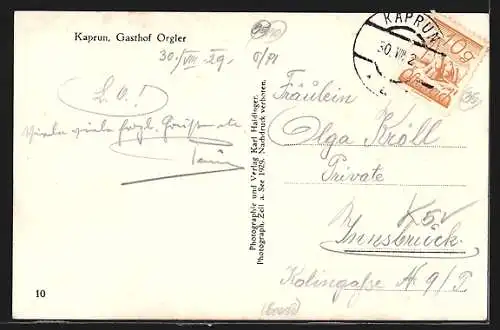 Kaprun, Gasthof Orgler
30./VIII. 29.
L. O.!
Viele viele
Photographie und Verlag Karl Haidinger,
Photograph, Zell a. See 1929. Nachdruck verboten.
KAPRUN
30.VIII.2
10g
Fräulein
Olga Kröll
Private
Innsbruck.
Kolingaße № 9/I
10